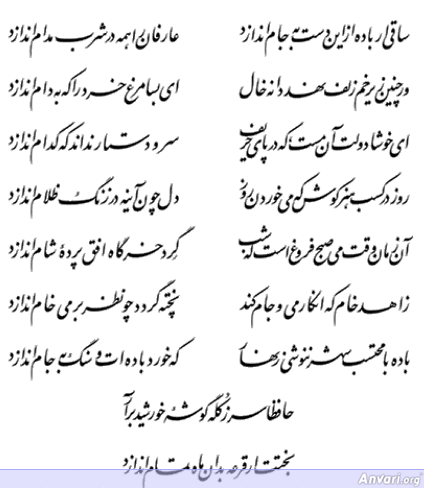 ساقی ار باده ازین دست به جام اندازد
عارفان را همه در شرب مدام اندازد
ور چنین زیر خم زلف نهد دانه خال
ای بسا مرغ خرد را که به دام اندازد
ای خوشا دولت آن مست که در پای حریف
سر و دستار نداند که کدام اندازد
روز در کسب هنر کوش که می خوردن روز
دل چون آینه در زنگ ظلام اندازد
آن زمان وقت می صبح فروغ است که شب
گرد خرگاه افق پرده شام اندازد
زاهد خام که انکار می و جام کند
پخته گردد چو نظر بر می خام اندازد
باده با محتسب شهر ننوشی زنهار
که خورد باده ات و سنگ به جام اندازد
حافظا سر ز کله گوشه خورشید برآر
بختت ار قرعه بدان ماه تمام اندازد
Anvari.org